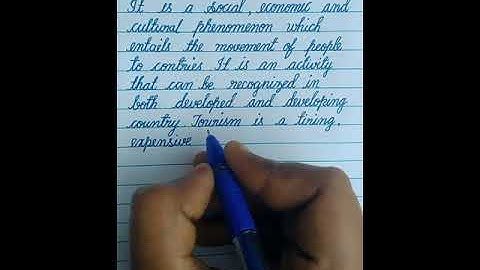 It is a social, economic and
cultural phenomenon which
entails the movement of people
to contries It is an activity
that can be recognized in
both developed and developing
country Tourism is a tiring,
expensive